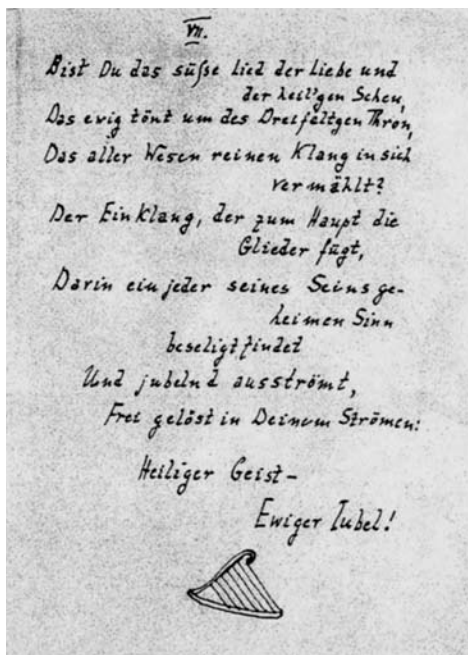 VII.
Bist Du das süße Lied der Liebe und
der heil'gen Scheu,
Das ewig tönt um des Dreifaltgen Thron,
Das aller Wesen reinen Klang in sich
vermählt?
Der Einklang, der zum Haupt die
Glieder fügt,
Darin ein jeder seines Seins ge-
heimen Sinn
beseligt findet
Und jubelnd ausströmt,
Frei gelöst in Deinem Strömen:
Heiliger Geist –
Ewiger Jubel!